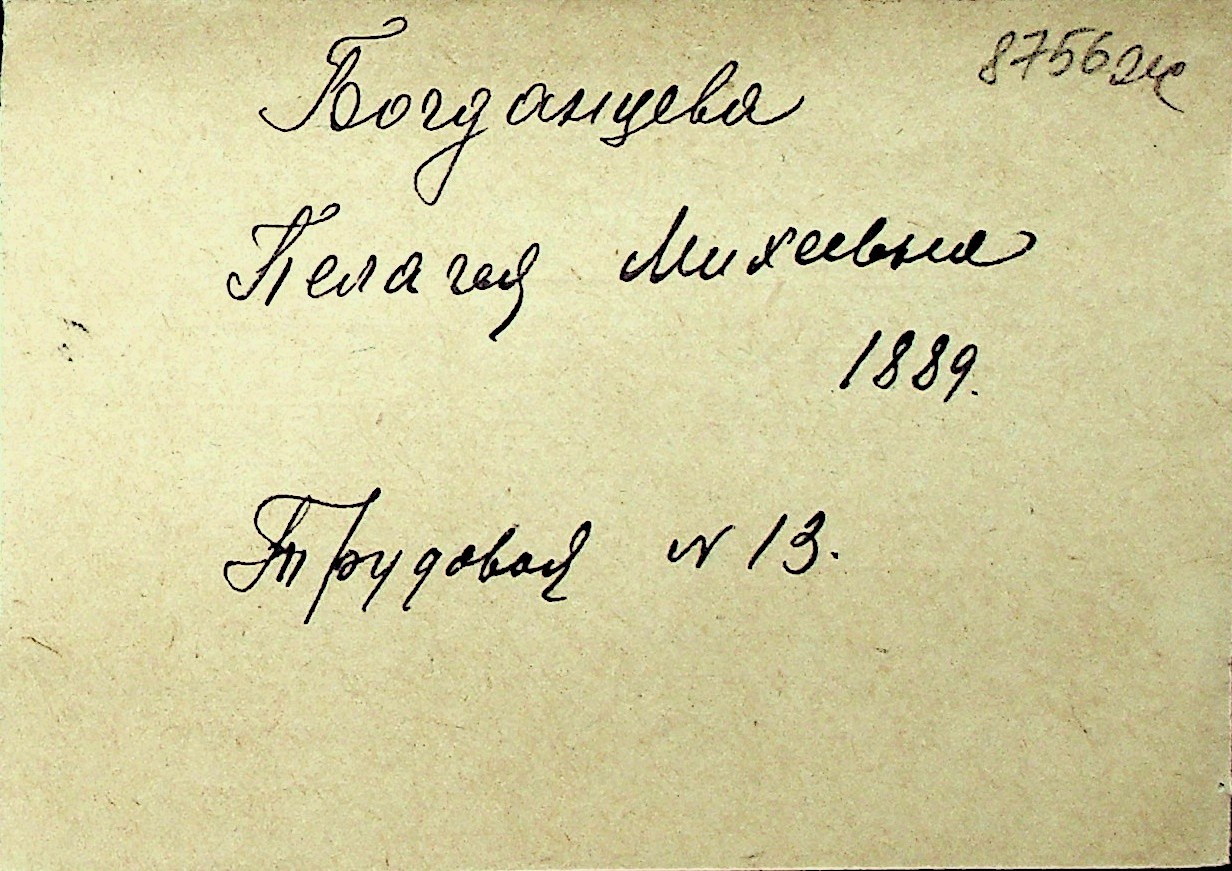 8756
Богданцева
Пелагея Михеевна
1889.
Трудовая N 13.